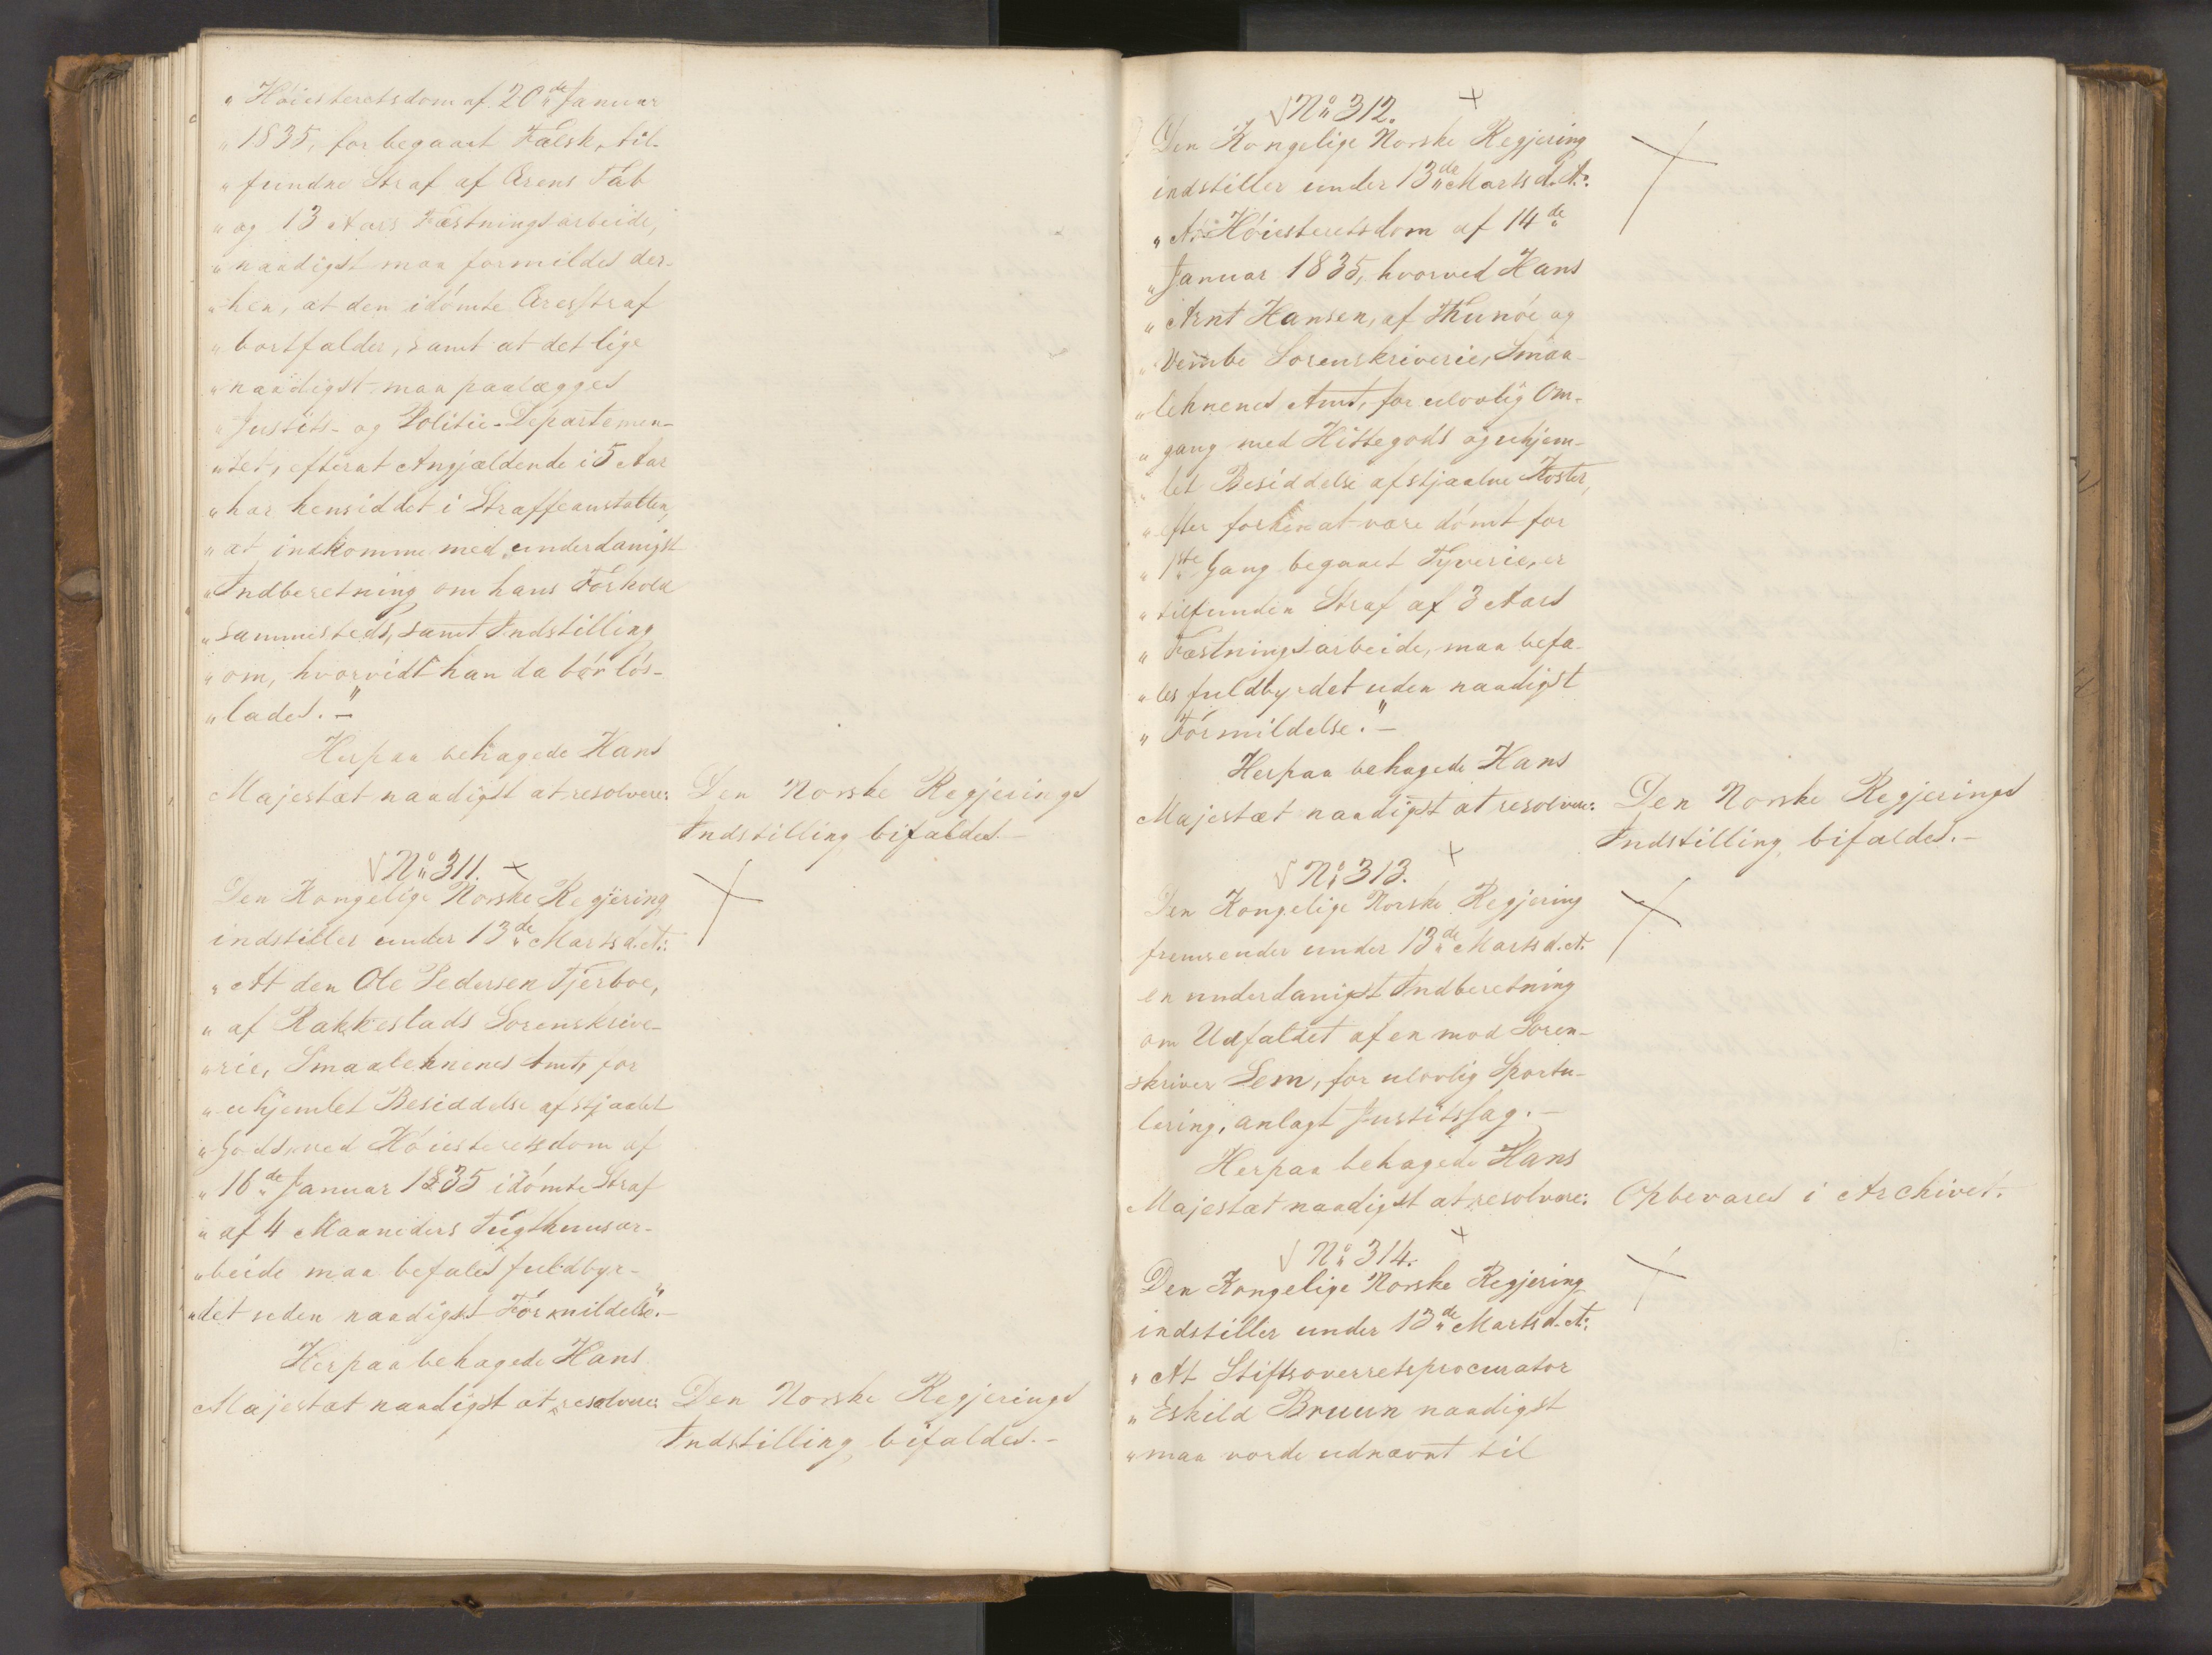 „Höiesteretsdom af 20de Januar
„1835, for begaaet Falsk, til-
„fundne Straf af Ærens Tab
„og 13 Aars Fæstningsarbeide,
„naadigst maa formildes der-
„hen, at den idömte Æresstraf
„bortfalder, samt at det lige
„naadigst maa paalægges
„Justits- og Politie-Departemen-
„tet, efterat Angjældende i 5 Aar
„har hensiddet i Straffeanstalten,
„at indkomme med underdanigst
„Indberetning om hans Forhold
„sammesteds, samt Indstilling
„om, hvorvidt han da bör lös-
„lades.“-
Herpaa behagede Hans
Majestæt naadigst at resolvere: Den Norske Regjerings
Indstilling bifaldes.-
No 311.
Den Kongelige Norske Regjering
indstiller under 13de Marts d.A.:
„At den Ole Pedersen Tjerboe,
„af Rakkestads Sorenskrive-
„rie, Smaalehnenes Amt, for
„uhjemlet Besiddelse af stjaalet
„Gods, ved Höiesteretsdom af
„16de Januar 1835 idömte Straf
„af 4 Maaneders Tugthuusar-
„beide maa befales fuldbyr-
„det uden naadigst Formildelse.“-
Herpaa behagede Hans
Majestæt naadigst at resolvere: Den Norske Regjerings
Indstilling bifaldes.-
No 312.
Den Kongelige Norske Regjering
indstiller under 13de Marts d.A.:
„At Höiesteretsdom af 14de
„Januar 1835, hvorved Hans
„Arnt Hansen, af Thunöe og
„Vembe Sorenskriverie, Smaa-
„lehnenes Amt, for ulovlig Om-
„gang med Hittegods og uhjem-
„let Besiddelse af stjaalne Koster,
„efter forhen at være dömt for
„1ste Gang begaaet Tyverie, er
„tilfunden Straf af 3 Aars
„Fæstningsarbeide, maa befa-
„les fuldbyrdet uden naadigst
„Formildelse.“-
Herpaa behagede Hans
Majestæt naadigst at resolvere: Den Norske Regjerings
Indstilling bifaldes.-
No 313.
Den Kongelige Norske Regjering
fremsender under 13de Marts d.A.
en underdanigst Indberetning
om Udfaldet af en mod Soren-
skriver Lem, for ulovlig Sportu-
lering, anlagt Justitssag.-
Herpaa behagede Hans
Majestæt naadigst at resolvere: Opbevares i Archivet.
No 314.
Den Kongelige Norske Regjering
indstiller under 13de Marts d.A.:
„At Stiftsoverretsprocurator
„Eskild Bruun naadigst
„maa vorde udnævnt til